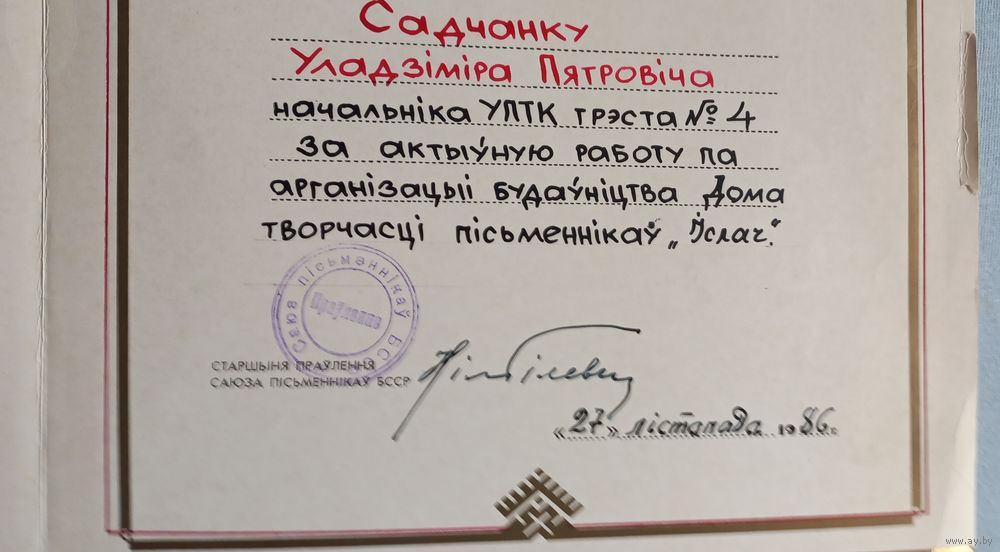 Садчанку
Уладзіміра Пятровіча
начальніка УПТК трэста № 4
за актыўную работу па
арганізацыі будаўніцтва Дома
творчасці пісьменнікаў „Іслач“.
Саюз пісьменнікаў БССР
Праўленне
СТАРШЫНЯ ПРАЎЛЕННЯ
САЮЗА ПІСЬМЕННІКАЎ БССР
Ніл Гілевіч
„27„ лістапада 1986г.
www.ay.by